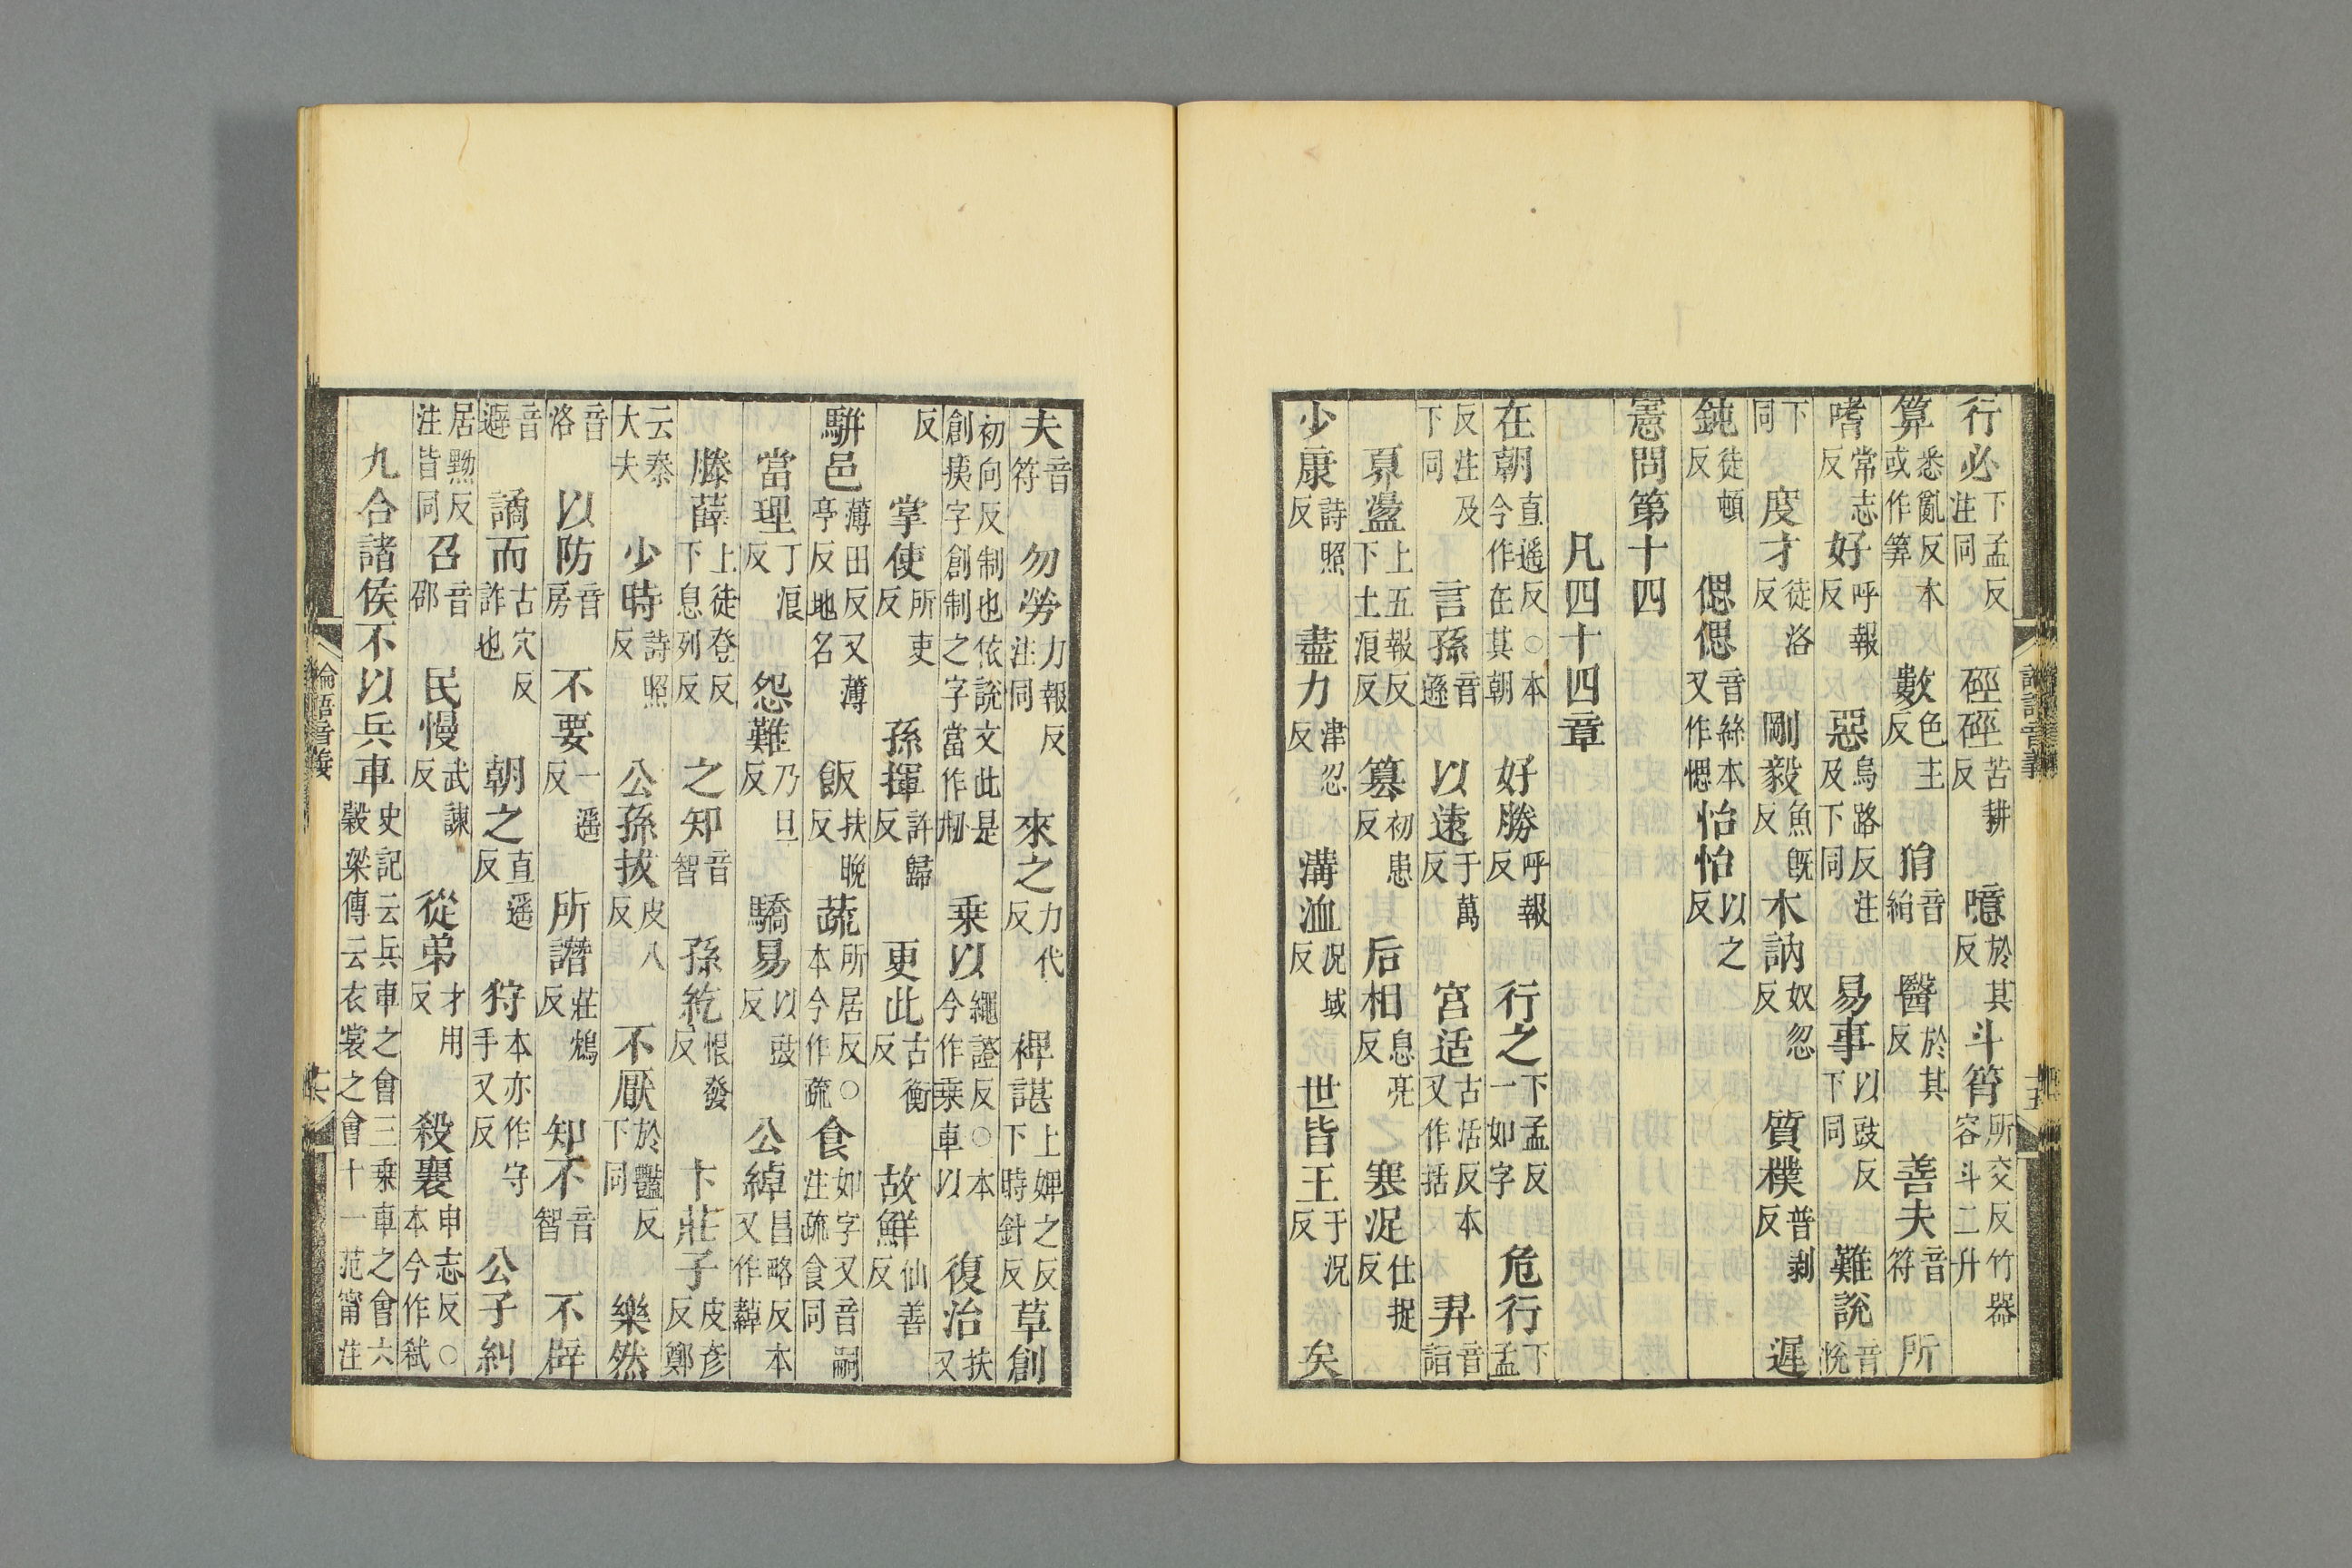 行必下孟反注同 硜硜苦耕反 噫於其反 斗筲所交反竹器容斗二升
算悉亂反本或作筭 數色主反 狷音絹 醫於其反 善夫音符 所
嗜常志反 好呼報反 惡烏路反注及下同 易事以豉反下同 難說音悅
下同 度才徒洛反 剛毅魚旣反 木訥奴忽反 質樸普剥反 遲
鈍徒頓反 偲偲音絲本又作愢 怡怡以之反
憲問第十四
凡四十四章
在朝直遥反○本今作在其朝 好勝呼報反 行之下孟反一如字 危行下孟
反注及下同 言孫音遜 以遠于萬反 宫适古活反本又作括 羿音詣
奡盪上五報反下土浪反 篡初患反 后相息亮反 寒浞仕捉反
少康詩照反 盡力津忍反 溝洫況域反 世皆王于況反 矣
夫音符 勿勞力報反注同 來之力代反 裨諶上婢之反下時針反 草創
初向反制也依說文此是創痍字創制之字當作刱 乗以繩證反○本今作乗車以 復治扶又
反 掌使所吏反 孫揮許歸反 更此古衡反 故鮮仙善反
駢邑薄田反又薄亭反地名 飯扶晚反 蔬所居反○本今作疏 食如字又音嗣注疏食同
當理丁浪反 怨難乃旦反 驕易以豉反 公綽昌略反本又作繛
滕薛上徒登反下息列反 之知音智 孫紇恨發反 卞莊子皮彦反鄭
云泰大夫 少時詩照反 公孫拔皮八反 不厭於豔反下同 樂然
音洛 以防音房 不要一遥反 所譖莊鴆反 知不音智 不辟
音避 譎而古穴反詐也 朝之直遥反 狩本亦作守手又反 公子糾
居黝反注皆同 召音邵 民慢武諫反 從弟才用反 殺襄申志反○本今作弑
九合諸侯不以兵車史記云兵車之會三乗車之會六穀梁傳云衣裳之會十一范甯注
論語音義